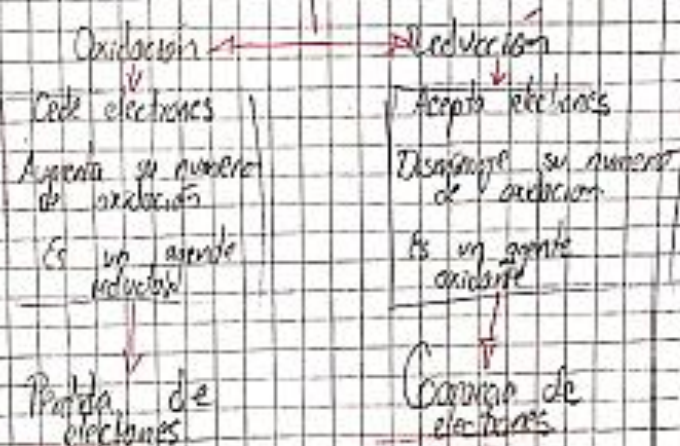 Oxidación
Reducción
Cede electrones
Aumenta su numero
de oxidación
Es un agende
reductor
Perdida de
electrones
Acepta electrones
Disminuye su numero
de oxidacion
Es un agente
oxidante
Ganancia de
electrones